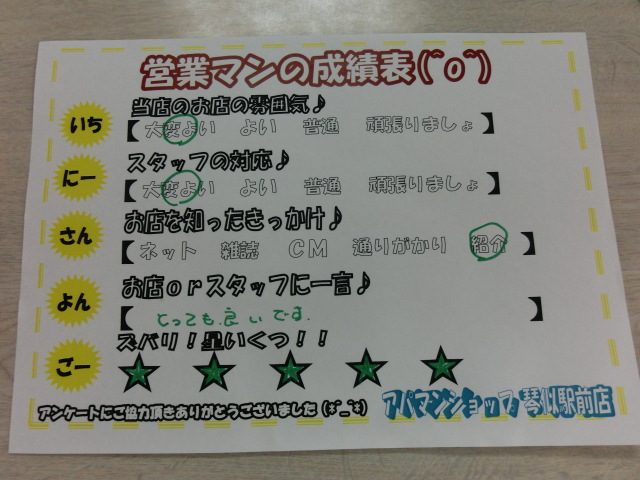 営業マンの成績表(^o^)
いち
当店のお店の雰囲気♪
【大変よい よい 普通 頑張りましょ】
にー
スタッフの対応♪
【大変よい よい 普通 頑張りましょ】
さん
お店を知ったきっかけ♪
【ネット 雑誌 CM 通りがかり 紹介】
よん
お店orスタッフに一言♪
【とっても良いです.】
ごー
ズバリ!星いくつ!!
★ ★ ★ ★ ★
アンケートにご協力頂きありがとうございました(*^_^*)
アパマンショップ琴似駅前店